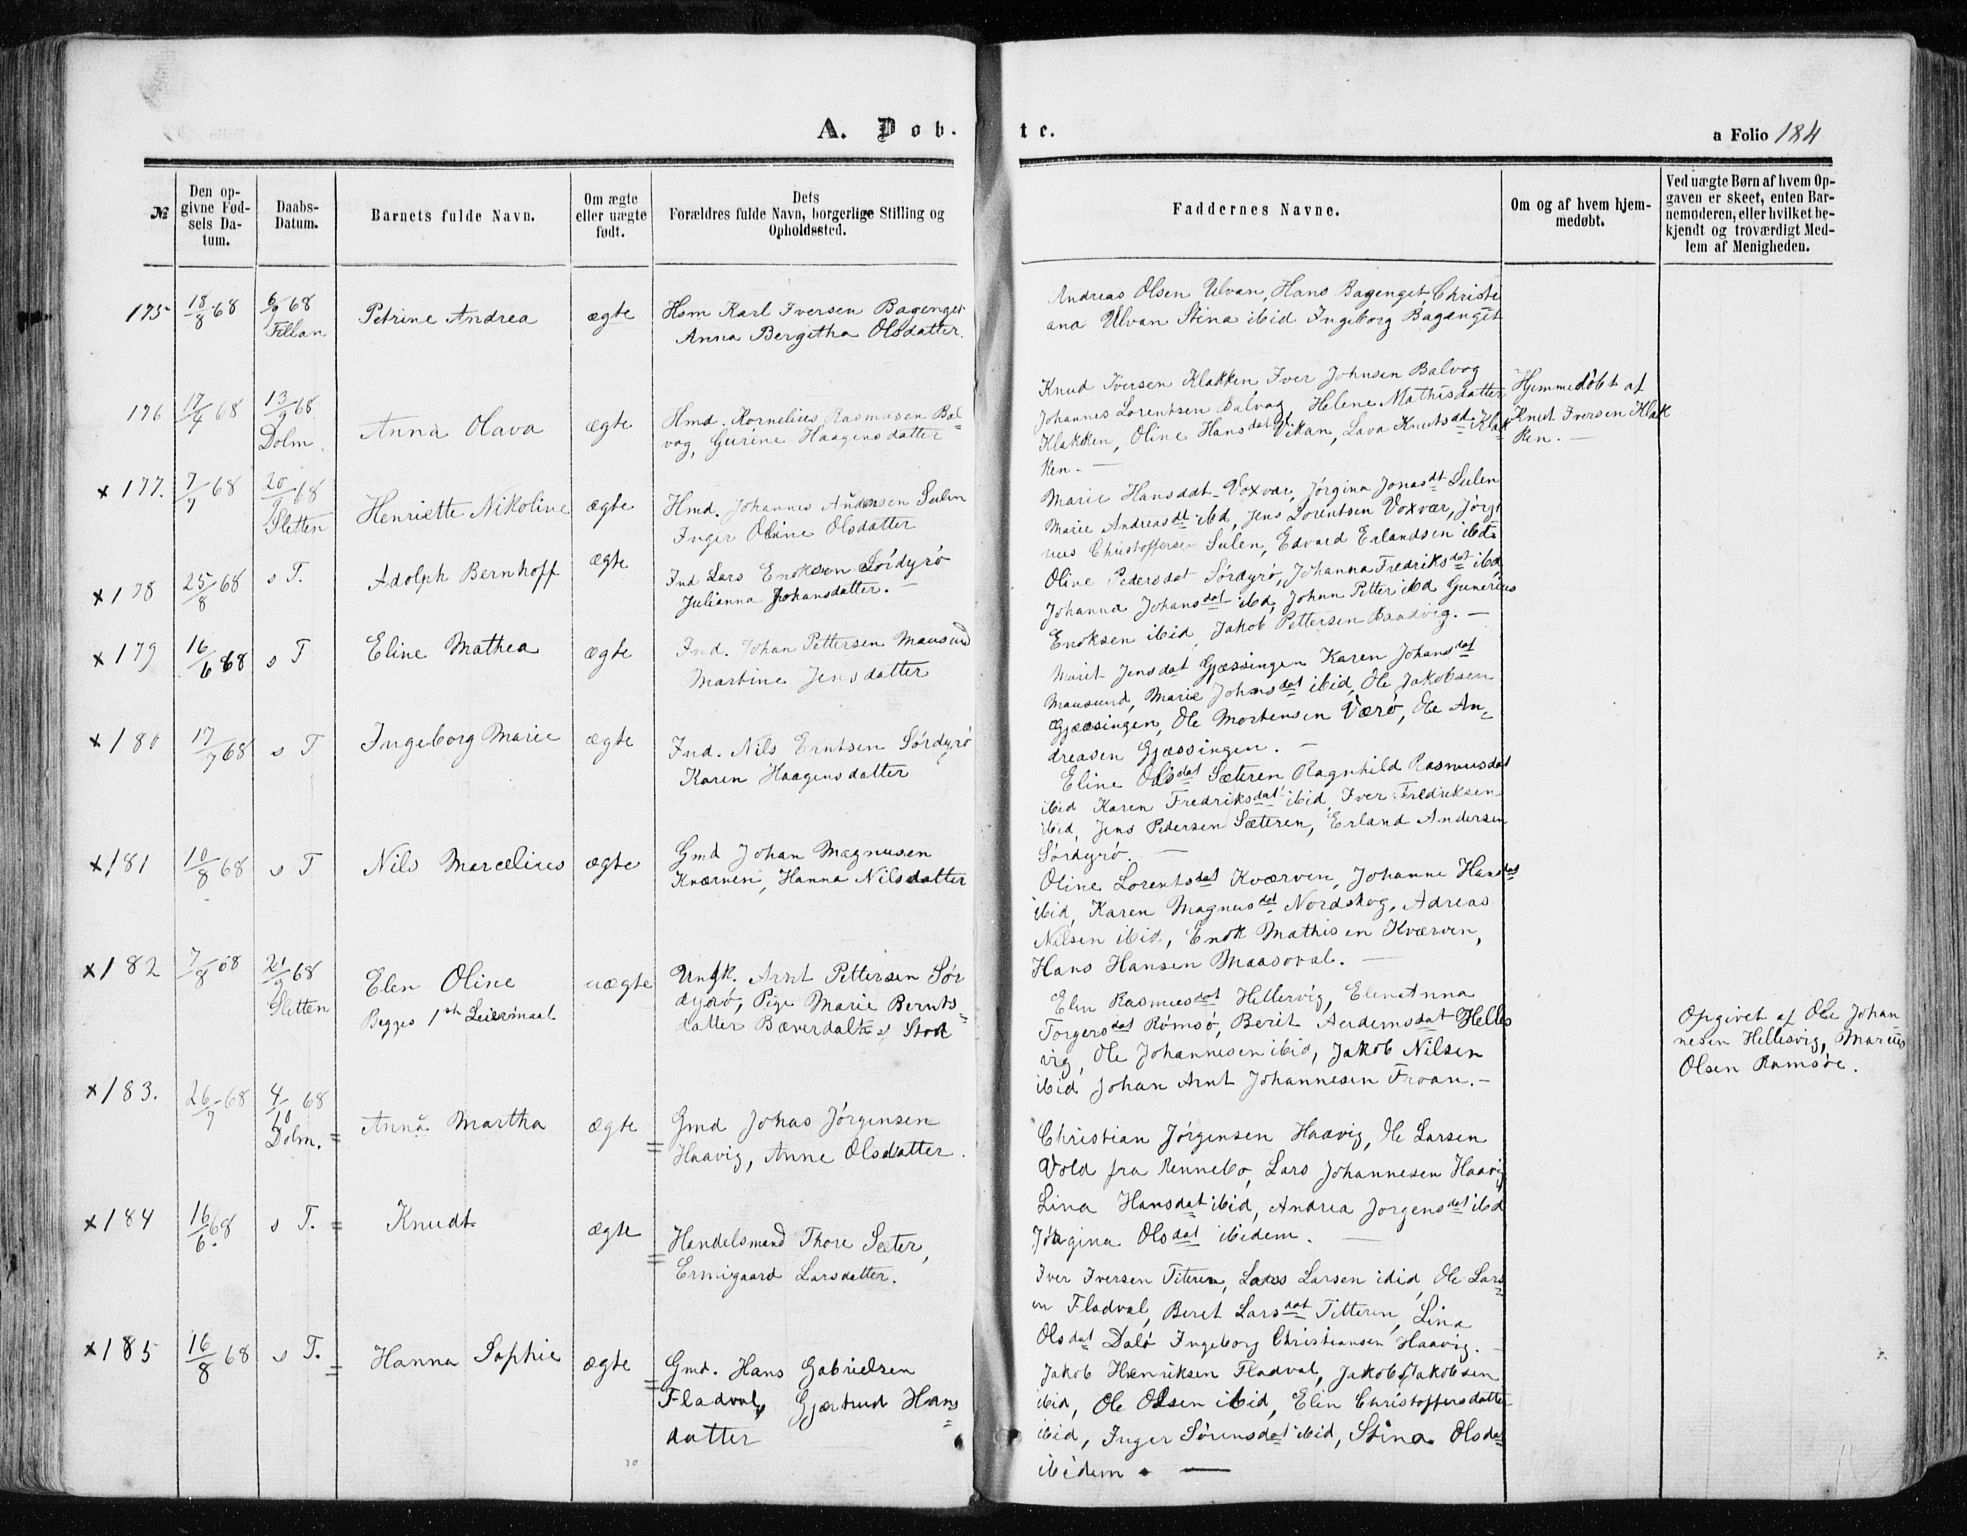 A. Døb- te.
a Folio 184
№
Den opgivne Fødsels Datum.
Daabs-Datum.
Barnets fulde Navn.
Om ægte eller uægte født.
Dets Forældres fulde Navn, borgerlige Stilling og Opholdssted.
Faddernes Navne.
Om og af hvem hjemmedøbt.
Ved uægte Børn af hvem Opgaven er skeet, enten Barnemoderen, eller hvilket bekjendt og troværdigt Medlem af Menigheden.
175 18/8 68 6/9 68 Fillan Petrine Andrea ægte
Hsm Karl Iversen Bagenget
Anna Bergitha Olsdatter.
Andreas Olsen Ulvan, Hans Bagenget, Christi
ana Ulvan Stina ibid Ingeborg Bagenget
176 17/4 68 13/9 68 Dolm. Anna Olava ægte
Hmd. Kornelius Rasmusen Bal=
vog, Gurine Haagensdatter
Knud Iversen Klakken Iver Johnsen Balvog
Johannes Lorentsen Balvog Helene Mathisdatter
Klakken, Oline Hansdat Vikan, Lava Knutsdt Klak
ken. —
Hjemmedöbt af
Knut Iversen Klak
ken. —
x 177. 7/7 68 20/9 68 Sletten Henriette Nikoline ægte
Hmd. Johannes Andersen Sulen
Inger Oline Olsdatter
Marie Hansdat Voxvær, Jørgina Jonasdt Sulen
Marie Andreasdt ibid, Jens Lorentsen Voxvær, Jørgi
nus Christoffersen Sulen, Edvard Erlandsen ibid
x 178 25/8 68 s T. Adolph Bernhoff ægte
Ind Lars Enoksen Sördyrö
Julianna Johansdatter.
Oline Pedersdat Sördyrö, Johanna Fredriksdat ibid
Johanna Johansdat ibid, Johan Petter ibid Gunerius
Enoksen ibid, Jakob Pettersen Baadvig. —
x 179 16/6 68 s T Eline Mathea ægte
Ind. Johan Pettersen Mausund
Martine Jensdatter
Marit Jensdat Gjæssingen Karen Johansdat
Mausund, Marie Johnsdat ibid, Ole Jakobsen
Gjæssingen, Ole Mortensen Værö, Ole An,
dreasen Gjæssingen. —
x 180 17/7 68 s T Ingeborg Marie ægte
Ind. Nils Erntsen Sördyrö
Karen Haagensdatter
Eline Olsdat Sæteren Ragnhild Rasmusdat
ibid Karen Fredriksdat ibid, Iver Fredriksen
ibid, Jens Pedersen Sæteren, Erland Andersen
Sördyrö. —
x 181 10/8 68 s T Nils Marcelius ægte
Gmd Johan Magnusen
Kværven, Hanna Nilsdatter
Oline Lorentsdat Kværven, Johanne Hansdat
ibid, Karen Magnusdat Nordskog, Adreas
Nilsen ibid, Enok Mathisen Kværven,
Hans Hansen Maasoval. —
x 182 7/8 68 21/9 68 Sletten Elen Oline uægte
Begges 1ste Leiermaal
Ungk. Arnt Pettersen Sör
dyrö, Pige Marie Bernts=
datter Bæverdalen
Elen Rasmusdat Hellesvig, Elen Anna
Torgersdat Römsö, Berit Aerdemsdat Helles
vig, Ole Johannesen ibid, Jakob Nilsen
ibid Johan Arnt Johannesen Froan. —
Opgivet af Ole Johan
nesen Hellesvig, Marius
Olsen Ramsöe.
x 183. 26/7 68 4/10 68 Dolm. Anna Martha ægte
Gmd Johas Jörgensen
Haavig, Anne Olsdatter.
Christian Jörgensen Haavig, Ole Larsen
Vold fra Rennebo, Lars Johannesen Haavig
Lina Hansdat ibid, Andrea Jorgensdat ibid
Jörgina Olsdat ibidem. —
x 184 16/6 68 s T. Knudt ægte
Handelsmand Thore Sæter,
Ermigaard Larsdatter.
Iver Iversen Titeren, Lars Larsen ibid, Ole Lars=
en Fladval, Beret Larsdat Titteren, Lina
Olsdat Dalö Ingeborg Christiansen Haavig. —
x 185 16/8 68 s T. Hanna Sophie ægte
Gmd. Hans Gabrielsen
Fladval, Gjærtrud Hans
datter
Jakob Henriksen Fladval, Jakob Jakobsen
ibid, Ole Olsen ibid, Elin Christoffersdatter
ibid, Inger Sörensdat ibid, Stina Olsdat
ibidem. —